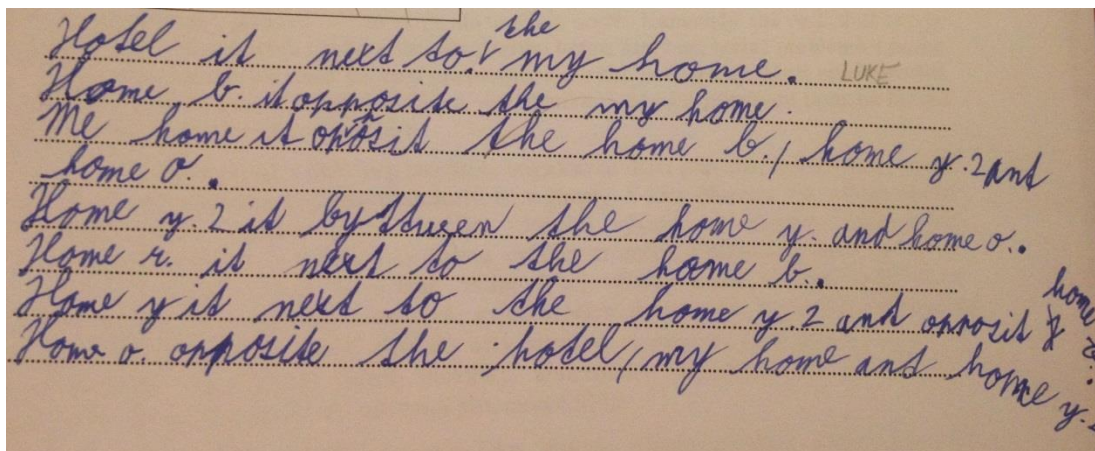 Hotel it next to the my home.
LUKE
Home b. it opposite the my home.
Me home it oposit the home b., home y.2 ant
home o.
Home y.2 it bytween the home y. and home o..
Home r. it next to the home b.
Home y it next to the home y.2 and opposit
home
Home o. opposite the hotel, my home ant home y.